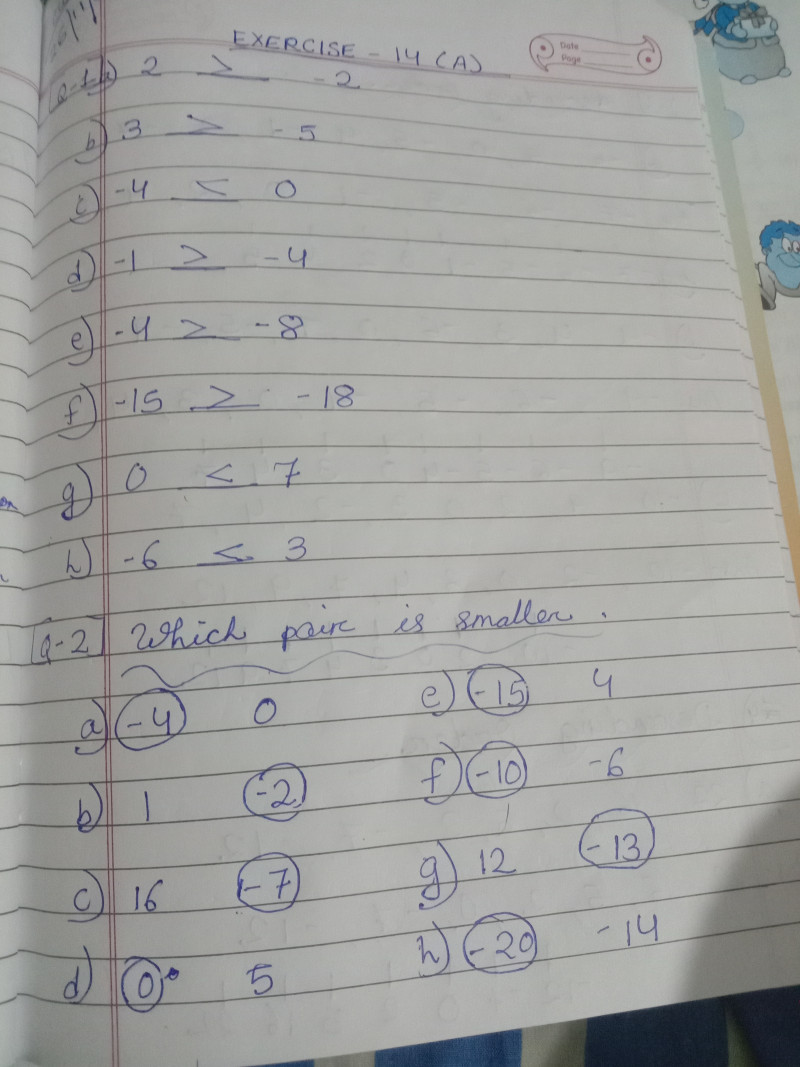 EXERCISE - 14 (A)
Date
Page
Q-1 a) 2 > -2
b) 3 > -5
c) -4 < 0
d) -1 > -4
e) -4 > -8
f) -15 > -18
g) 0 < 7
h) -6 < 3
Q-2 Which pair is smaller.
a) -4 0 e) -15 4
b) 1 -2 f) -10 -6
c) 16 -7 g) 12 -13
d) 0 5 h) -20 -14